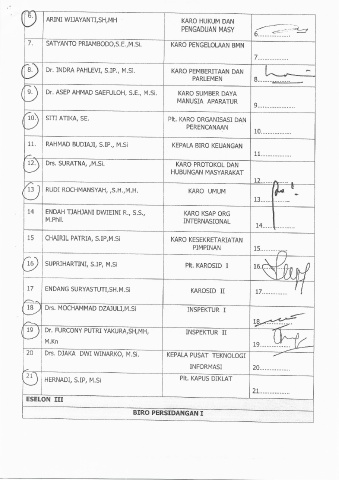 6. ARINI WIJAYANTI,SH,MH KARO HUKUM DAN
PENGADUAN MASY 6..............
7. SATYANTO PRIAMBODO,S.E.,M.Si. KARO PENGELOLAAN BMN
7..............
8. Dr. INDRA PAHLEVI, S.IP., M.Si. KARO PEMBERITAAN DAN
PARLEMEN 8..............
9. Dr. ASEP AHMAD SAEFULOH, S.E., M.Si. KARO SUMBER DAYA
MANUSIA APARATUR 9..............
10. SITI ATIKA, SE. Plt. KARO ORGANISASI DAN
PERENCANAAN 10..............
11. RAHMAD BUDIAJI, S.IP., M.Si KEPALA BIRO KEUANGAN
11..............
12. Drs. SURATNA, ,M.Si. KARO PROTOKOL DAN
HUBUNGAN MASYARAKAT 12..............
13 RUDI ROCHMANSYAH, ,S.H.,M.H. KARO UMUM
13..............
14 ENDAH TJAHJANI DWIEINI R., S.S.,
M.Phil. KARO KSAP ORG
INTERNASIONAL 14..............
15 CHAIRIL PATRIA, S.IP,M.Si KARO KESEKRETARIATAN
PIMPINAN 15..............
16 SUPRIHARTINI, S.IP, M.Si Plt. KAROSID I 16..............
17 ENDANG SURYASTUTI,SH.M.Si KAROSID II 17..............
18 Drs. MOCHAMMAD DZAJULI,M.Si INSPEKTUR I
18..............
19 Dr. FURCONY PUTRI YAKURA,SH,MH,
M.Kn INSPEKTUR II
19..............
20 Drs. DJAKA DWI WINARKO, M.Si. KEPALA PUSAT TEKNOLOGI
INFORMASI 20..............
21 HERNADI, S.IP, M.Si Plt. KAPUS DIKLAT
21..............
ESELON III
BIRO PERSIDANGAN I